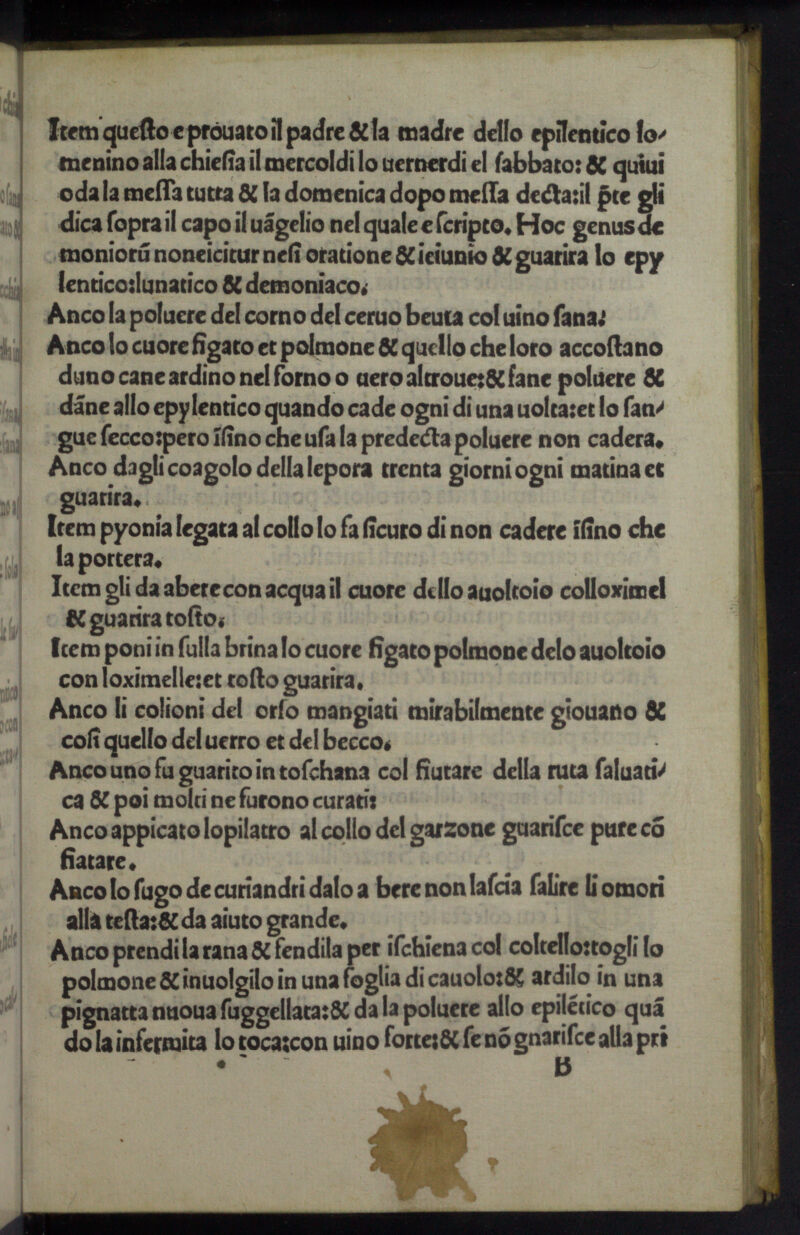 Item queſto e prouato il padre & la madre dello epilentico lo⸗
menino alla chieſia il mercoldi lo uernerdi el ſabbato: & quiui
oda la meſſa tutta & la domenica dopo meſſa decta:il p̄te gli
dica ſopra il capo il uāgelio nel quale e ſcripto. Hoc genus de
moniorū non eicitur neſi oratione & ieiunio & guarira lo epy
lentico:lunatico & demoniaco.
Anco la poluere del corno del ceruo beuta col uino ſana.
Anco lo cuore figato et polmone & quello che loro accoſtano
duno cane ardino nel forno o uero altroue:& fane poluere &
dāne allo epylentico quando cade ogni di una uolta:et lo ſan⸗
gue ſecco:pero īſino che uſa la predecta poluere non cadera.
Anco dagli coagolo della lepora trenta giorni ogni matina et
guarira.
Item pyonia legata al collo lo fa ſicuro di non cadere īſino che
la portera.
Item gli da a bere con acqua il cuore dello auoltoio colloximel
& guarira toſto.
Item poni in ſulla brina lo cuore figato polmone delo auoltoio
con loximelle:et toſto guarira.
Anco li colioni del orſo mangiati mirabilmente giouano &
coſi quello del uerro et del becco.
Anco uno fu guarito in toſchana col fiutare della ruta ſaluati⸗
ca & poi molti ne furono curati:
Anco appicato lopilatro al collo del garzone guariſce pure cō
fiatare.
Anco lo ſugo de curiandri dalo a bere non laſcia ſalire li omori
alla teſta:& da aiuto grande.
Anco prendi la rana & fendila per iſchiena col coltello:togli lo
polmone & inuolgilo in una foglia di cauolo:& ardilo in una
pignatta nuoua ſuggellata:& da la poluere allo epilētico quā
do la infermita lo toca:con uino forte:& ſe nō gnariſce alla pri
B